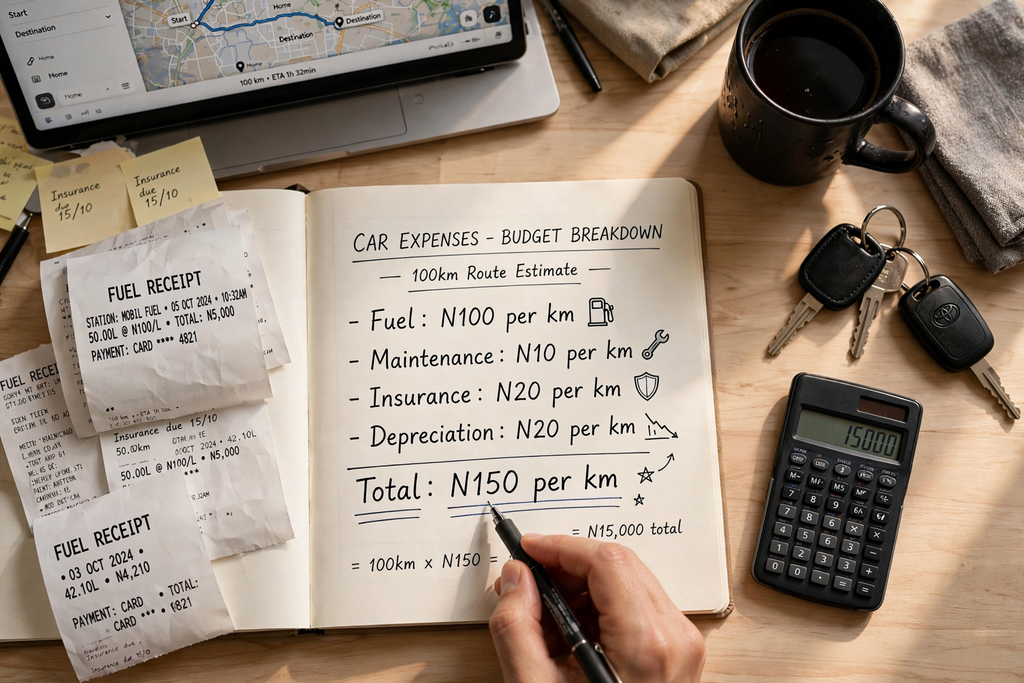 Start
Destination
Home
Home
Home
Start
Home
Destination
Destination
Home
100 km • ETA 1h 32min
Insurance
due
15/10
Insurance
due
15/10
FUEL RECEIPT
STATION: MOBIL FUEL • 05 OCT 2024 • 10:32AM
50.00L @ N100/L • TOTAL: N5,000
PAYMENT: CARD **** 4821
Insurance due 15/10
50.00L @ N100/L • N5,000
FUEL RECEIPT
• 03 OCT 2024 •
42.10L • N4,210
PAYMENT: CARD • TOTAL:
CARD *** • 1821
Insurance due
CAR EXPENSES - BUDGET BREAKDOWN
— 100km Route Estimate —
- Fuel: N100 per km
- Maintenance: N10 per km
- Insurance: N20 per km
- Depreciation: N20 per km
Total: N150 per km
= N15,000 total
= 100km x N150 =
15000